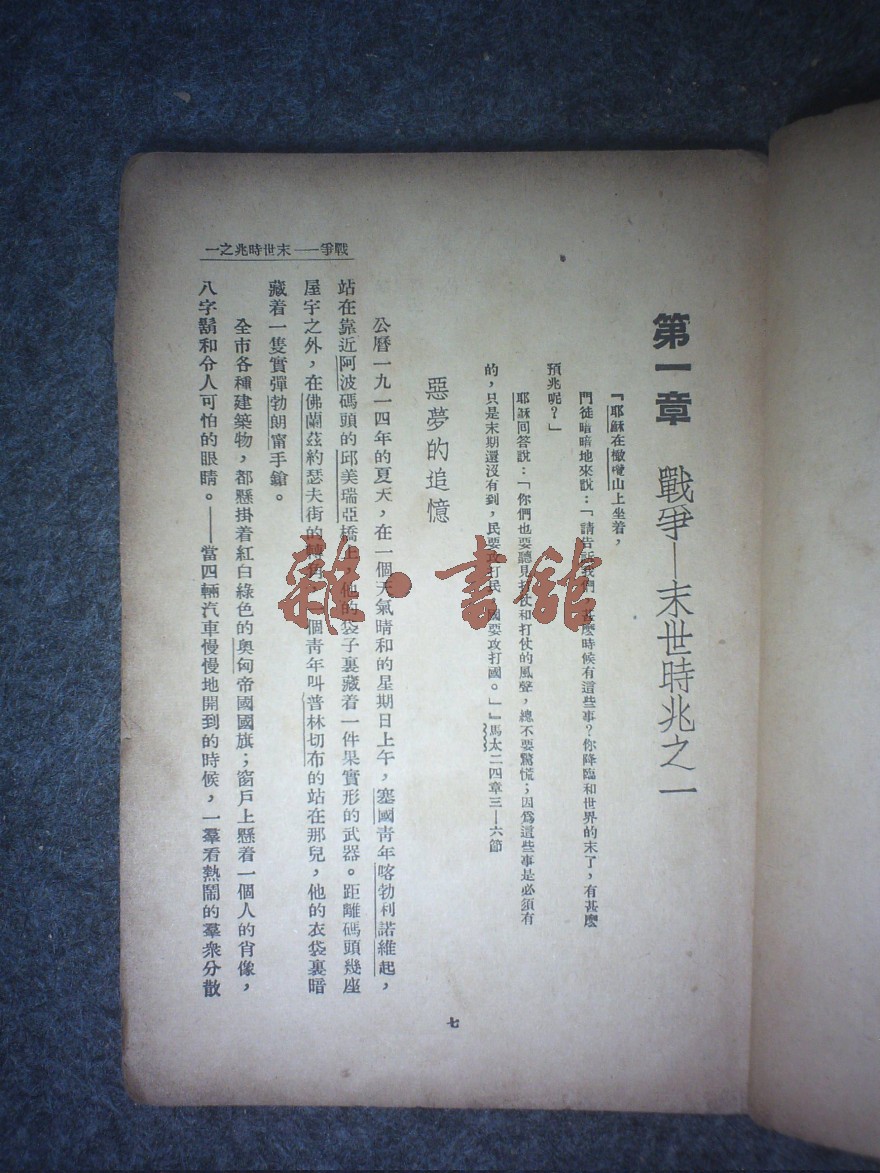 第一章 戰爭—末世時兆之一
『耶穌在橄欖山上坐着，
門徒暗暗地來說：「請告訴我們，甚麼時候有這些事？你降臨和世界的末了，有甚麼
預兆呢？」
耶穌回答說：「你們也要聽見打仗和打仗的風聲，總不要驚慌；因爲這些事是必須有
的，只是末期還沒有到，民要攻打民，國要攻打國。」』馬太二四章三—六節
惡夢的追憶
公曆一九一四年的夏天，在一個天氣晴和的星期日上午，塞國青年喀勃利諾維起，
站在靠近阿波碼頭的邱美瑞亞橋上，他的袋子裏藏着一件果實形的武器。距離碼頭幾座
屋宇之外，在佛蘭茲約瑟夫街的轉角，一個青年叫普林切布的站在那兒，他的衣袋裏暗
藏着一隻實彈勃朗甯手鎗。
全市各種建築物，都懸掛着紅白綠色的奥匈帝國國旗；窗戶上懸着一個人的肖像，
八字鬍和令人可怕的眼睛。——當四輛汽車慢慢地開到的時候，一羣看熱鬧的羣衆分散
戰爭——末世時兆之一
七
雜·書館